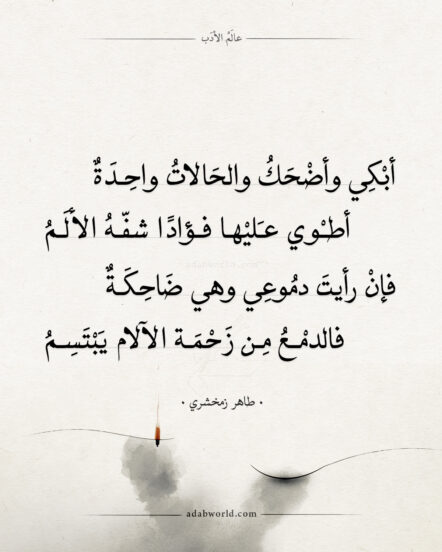 عالَمُ الأدَب
أبْكِي وأضْحَكُ والحَالاتُ واحِـدَةٌ
أطـْوي عـَليْهـا فـؤادًا شفّـهُ الألَـمُ
فإنْ رأيتَ دمُوعِي وهي ضَاحِكَـةٌ
فالدمْـعُ مِـن زَحْمَـة الآلام يَبْتَسِـمُ
• طاهر زمخشري •
adabworld.com